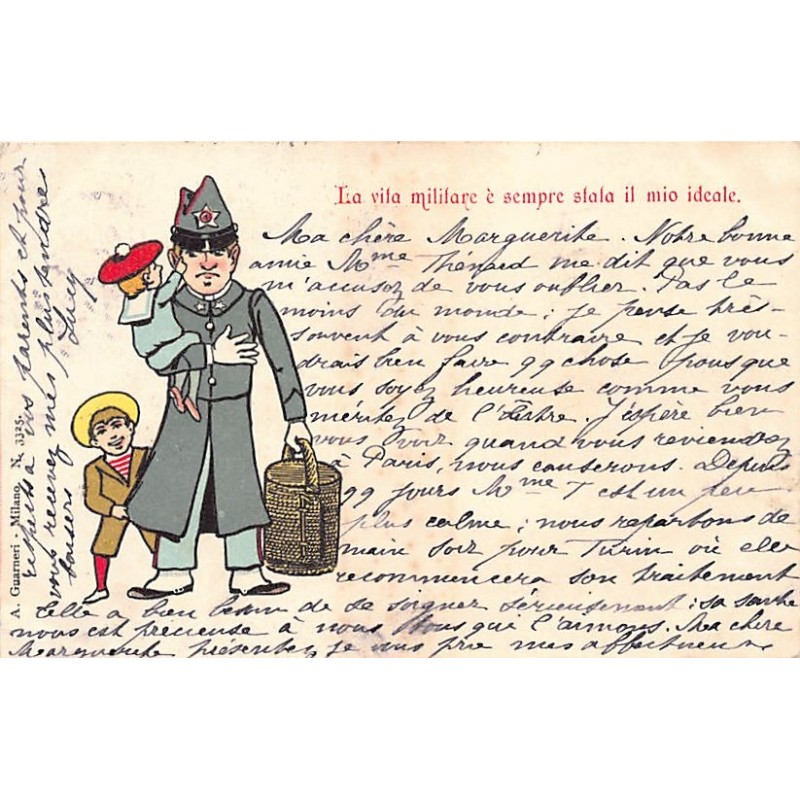 La vita militare è sempre stata il mio ideale.
Ma chère Marguerite. Notre bonne
amie Mme Thénard me dit que vous
m'accusez de vous oublier. Pas le
moins du monde; je pense très-
souvent à vous contraire et je vou-
drais bien faire qq chose pour que
vous soyez heureuse comme vous
méritez de l'être. J'espère bien
vous voir quand vous reviendrez
à Paris, nous causerons. Depuis
qq jours Mme T est un peu
plus calme; nous repartons de
main soir pour Turin où elle
recommencera son traitement
Elle a bien besoin de se soigner sérieusement; sa santé
nous est précieuse à nous tous qui l'aimons. Ma chère
Marguerite présentez je vous prie mes affectueux
respects à vos parents et pour
vous recevez mes plus tendres
baisers
Lucy
A. Guarneri - Milano. N. 3325.